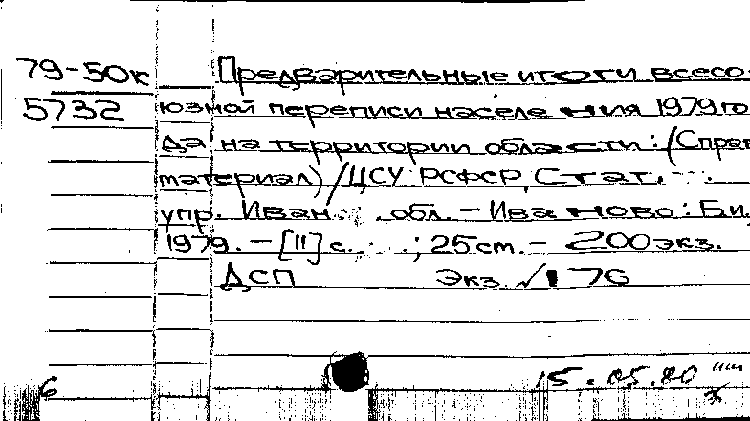 79-50к Предварительные итоги всесо
5732 юзной переписи населения 1979 го
да на территории области: (Справ
материал) / ЦСУ РСФСР, Стат.
упр. Иван. обл. - Иваново: Б.и.
1979. - [11] с. ; 25 см. - 200 экз.
ДСП Экз. √ 76
15.05.80
6